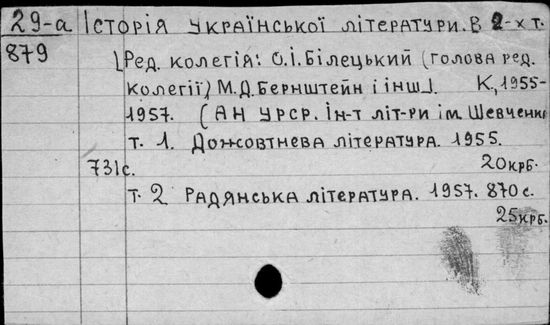 29-а Історія української літератури. В 2-х т.
879 [Ред. колегія: О.І. Білецький (голова ред.
колегії) М.Д. Бернштейн і інш.]. К, 1955-
1957. (АН УРСР. Ін-т літ-ри ім. Шевченк
т. 1. Дожовтнева література. 1955.
731с. 20крб.
т. 2 Радянська література. 1957. 870с.
25крб.